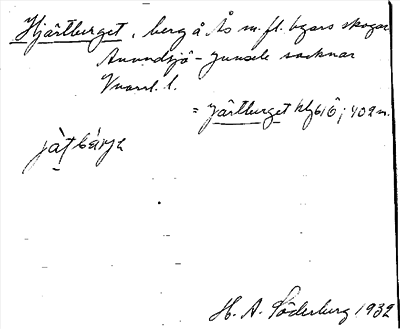 Hjärtberget, berg å Ås m.fl. byars skogar
Anundsjö - Junsele socknar
Vnorrl. l.
= Järtberget hfl 616; 402 m.
H. A. Söderberg 1932